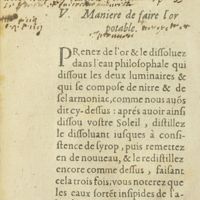 V. Maniere de faire l'or
potable.
PRenez de l'or & le dissoluez
dans l'eau philosophale qui
dissout les deux luminaires &
qui se compose de nitre & de
sel armoniac, comme nous auõs
dit cy-dessus : aprés auoir ainsi
dissou vostre Soleil, distillez
le dissoluant iusques à consi-
stence de syrop, puis remettez
en de nouueau, & le redistillez
encore comme dessus, faisant
cela trois fois, vous noterez que
les eaux fortẽt insipides de l'a-